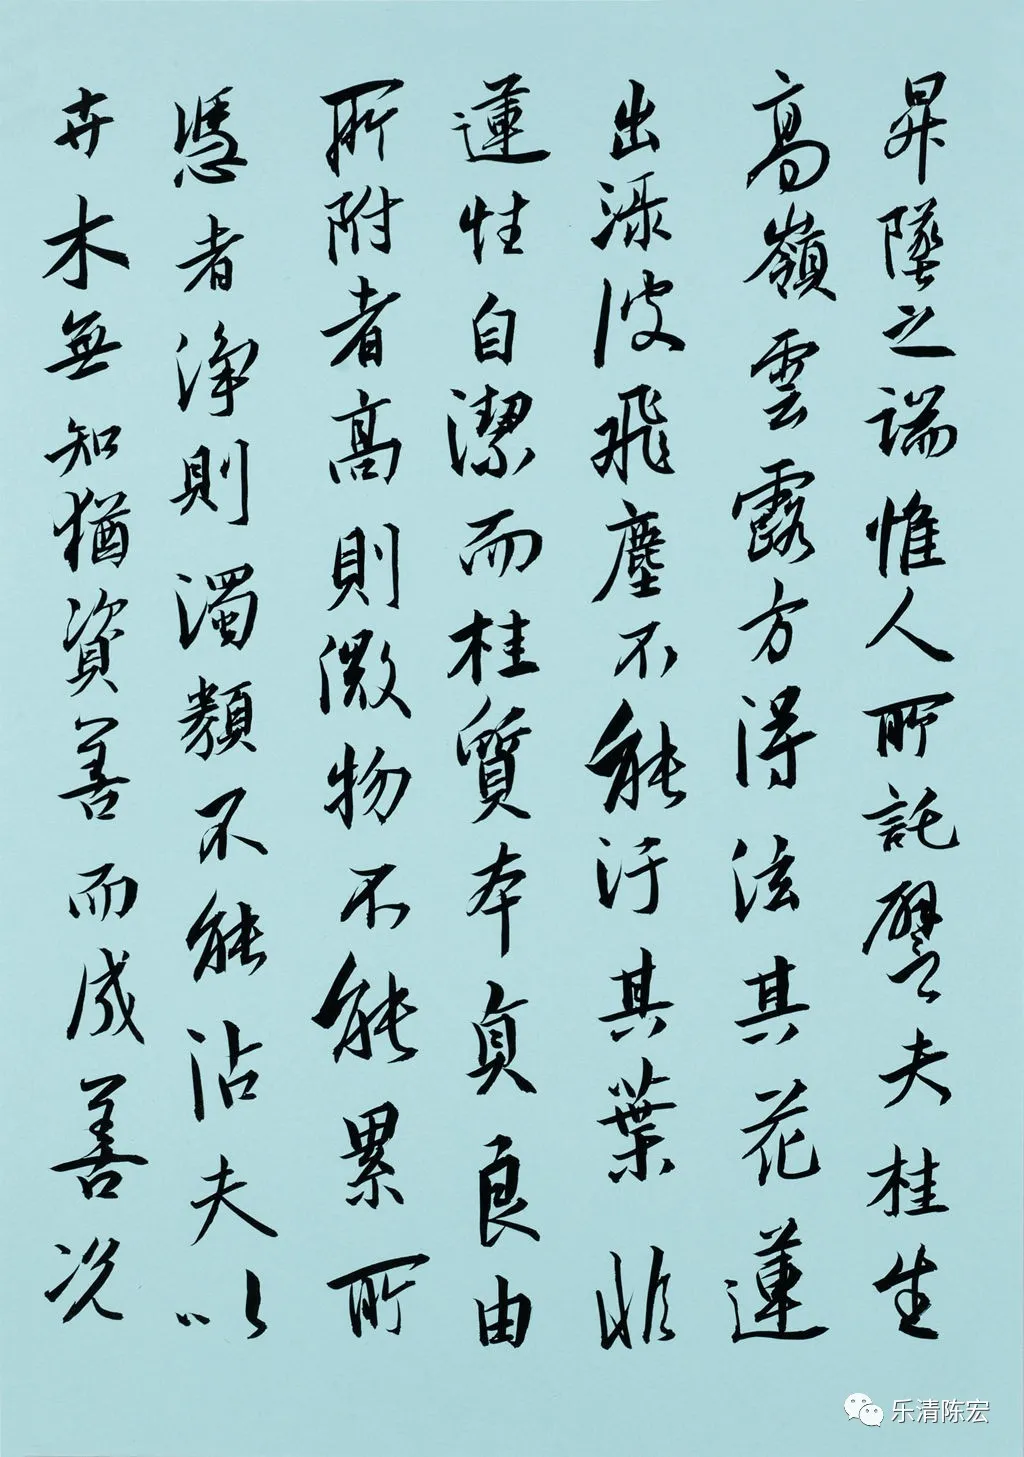 昇墜之端惟人所託譬夫桂生
高嶺雲露方得泫其花蓮
出渌波飛塵不能汙其葉非
蓮性自潔而桂質本貞良由
所附者高則微物不能累所
憑者淨則濁類不能沾夫以
卉木無知猶資善而成善況
乐清陈宏